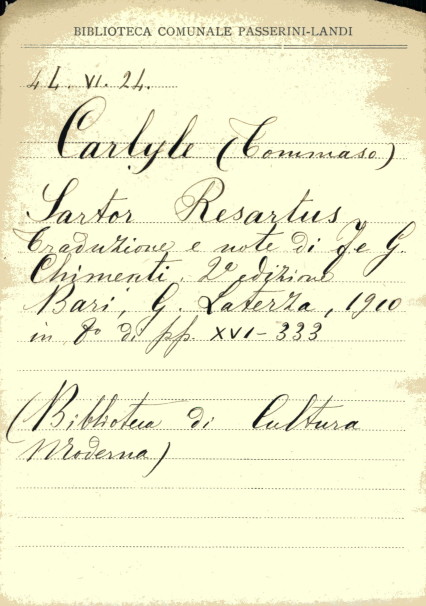 BIBLIOTECA COMUNALE PASSERINI-LANDI
4 L. VI. 24.
Carlyle (Tommaso)
Sartor Resartus
Traduzione e note di F. e G.
Chimenti. 2ª edizione
Bari, G. Laterza, 1910
in 8º di pp. XVI-333
(Biblioteca di Cultura
Moderna)